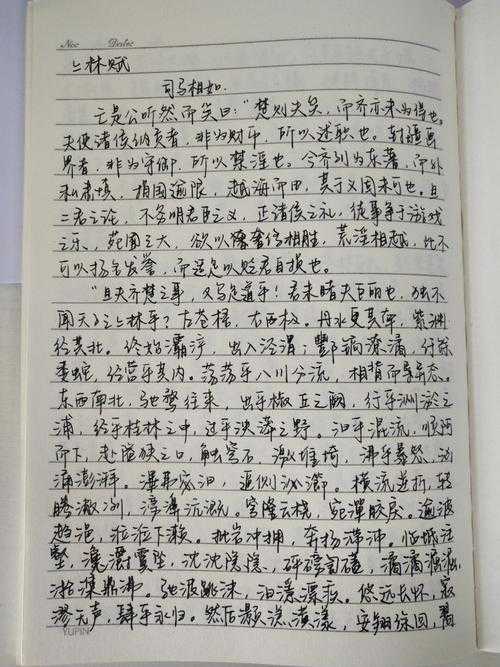 No:
Date:
上林赋
司马相如.
亡是公听然而笑曰：“楚则失矣，而齐亦未为得也。
夫使诸侯纳贡者，非为财币，所以述职也。封疆画
界者，非为守御，所以禁淫也。今齐列为东藩，而外
私肃慎，捐国逾限，越海而田，其于义固未可也。且
二君之论，不务明君臣之义，正诸侯之礼，徒事争于游戏
之乐，苑囿之大，欲以奢侈相胜，荒淫相越，此不
可以扬名发誉，而适足以贬君自损也。
“且夫齐楚之事，又乌足道乎！君未睹夫巨丽也，独不
闻天子之上林乎？左苍梧，右西极。丹水更其南，紫渊
径其北。终始灞浐，出入泾渭；酆镐潦潏，纡馀
委蛇，经营乎其内。荡荡乎八川分流，相背而异态。
东西南北，驰骛往来，出乎椒丘之阙，行乎洲淤之
浦，经乎桂林之中，过乎泱漭之野。汩乎混流，顺阿
而下，赴隘狭之口，触穹石，激堆埼，沸乎暴怒，汹
涌澎湃。滭弗宓汩，逼侧泌瀄。横流逆折，转
腾潎洌，滂濞沆溉。穹隆云桡，宛潬胶戾。逾波
趋浥，涖涖下濑。批岩冲拥，奔扬滞沛。临坻注
壑，瀺灂霣坠，沈沈隐隐，砰磅訇礚，潏潏淈淈，
湁潗鼎沸。驰波跳沫，汩漂疾。悠远长怀，寂
漻无声，肆乎永归。然后灏溔潢漾，安翔徐回，翯
YUPIN